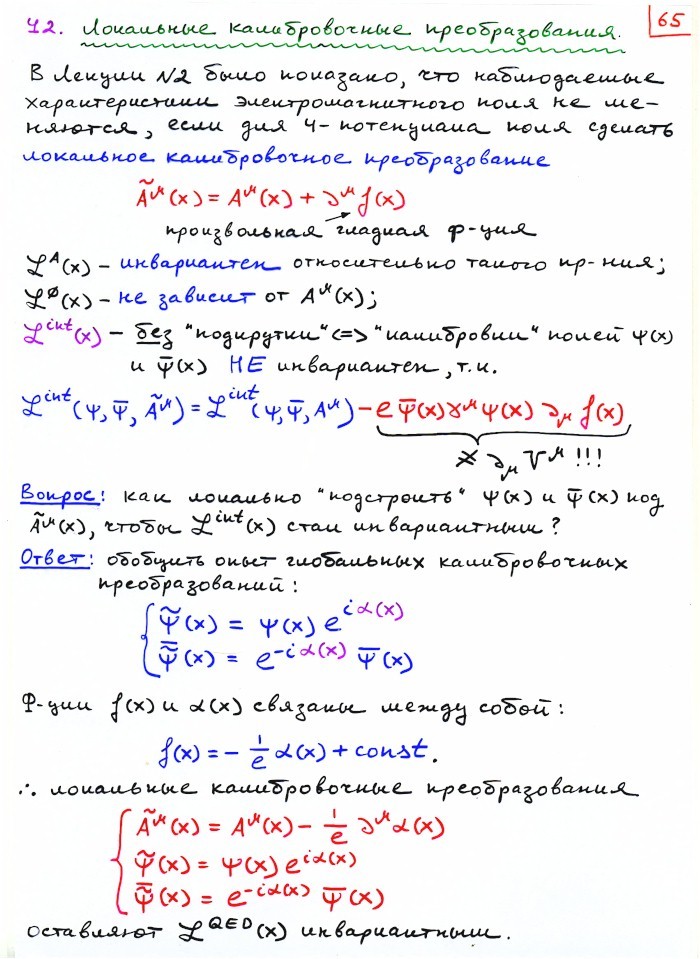 42. Локальные калибровочные преобразования.
65
В Лекции N2 было показано, что наблюдаемые
характеристики электромагнитного поля не ме-
няются, если для 4-потенциала поля сделать
локальное калибровочное преобразование
Ã^μ(x) = A^μ(x) + ∂^μ f(x)
произвольная гладкая ф-ция
ℒ^A(x) – инвариантен относительно такого пр-ния;
ℒ^∅(x) – не зависит от A^μ(x);
ℒ^int(x) – без "подкрутки" <=> "калибровки" полей ψ(x)
и ψ̄(x) НЕ инвариантен, т.к.
ℒ^int(ψ, ψ̄, Ã^μ) = ℒ^int(ψ, ψ̄, A^μ) – e ψ̄(x) γ^μ ψ(x) ∂_μ f(x)
≠ ∂_μ V^μ !!!
Вопрос: как локально "подстроить" ψ(x) и ψ̄(x) под
Ã^μ(x), чтобы ℒ^int(x) стал инвариантным?
Ответ: обобщить опыт глобальных калибровочных
преобразований:
ψ̃(x) = ψ(x) e^{iα(x)}
ψ̄̃(x) = e^{-iα(x)} ψ̄(x)
Ф-ции f(x) и α(x) связаны между собой:
f(x) = – 1/e α(x) + const.
∴ локальные калибровочные преобразования
Ã^μ(x) = A^μ(x) – 1/e ∂^μ α(x)
ψ̃(x) = ψ(x) e^{iα(x)}
ψ̄̃(x) = e^{-iα(x)} ψ̄(x)
оставляют ℒ^QED(x) инвариантным.